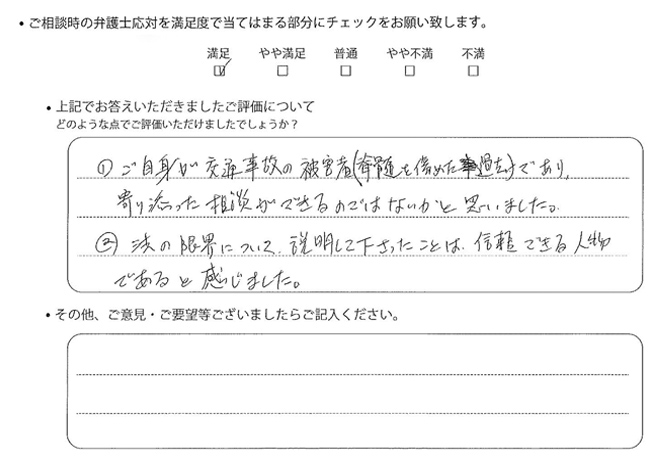 • ご相談時の弁護士応対を満足度で当てはまる部分にチェックをお願い致します。
満足 やや満足 普通 やや不満 不満
☑ □ □ □ □
• 上記でお答えいただきましたご評価について
どのような点でご評価いただけましたでしょうか？
① ご自身が交通事故の被害者(脊髄を傷めた過去)であり、
寄り添った相談ができるのではないかと思いました。
② 法の限界について、説明して下さったことは、信頼できる人物
であると感じました。
• その他、ご意見・ご要望等ございましたらご記入ください。